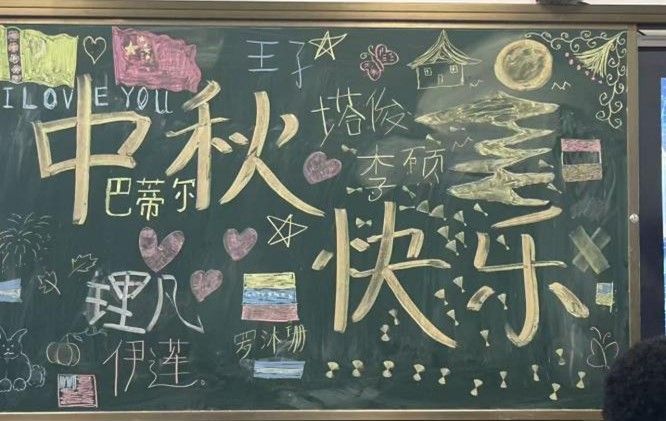 I LOVE YOU
王子
中秋
塔俊
李硕
巴蒂尔
快乐
理凡
罗沐珊
伊莲。